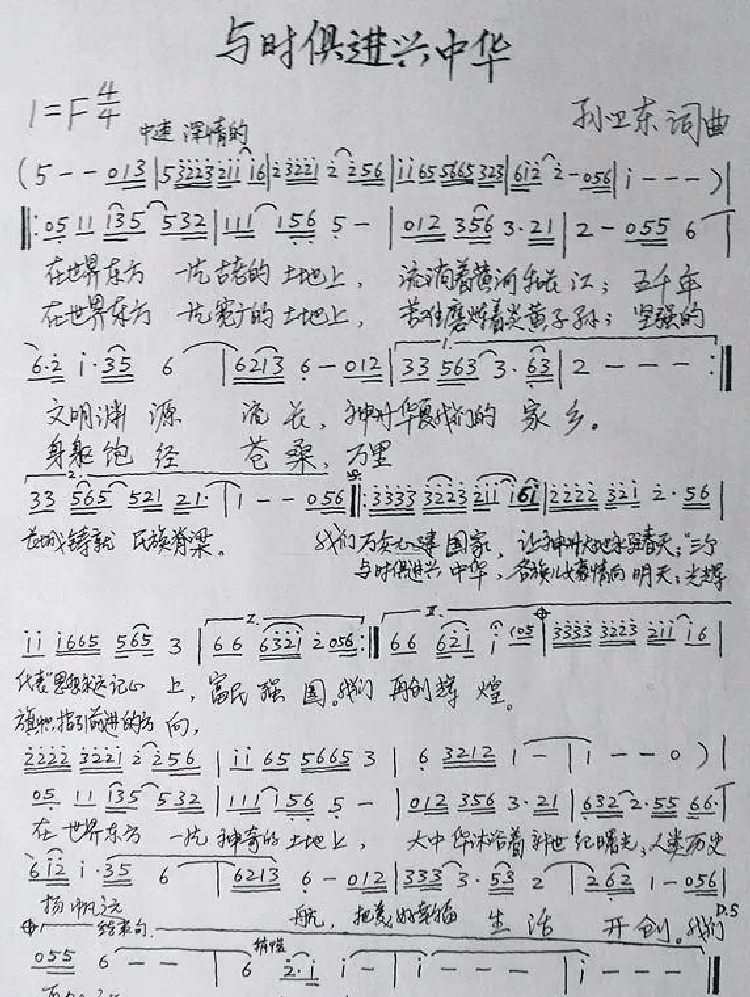 与时俱进兴中华
1=F 4/4
中速 深情的
孙卫东 词曲
(5 - - 013 | 53223 211 16 | 23221 2 256 | 11 65 5665 323 | 612 2 - 056 | 1 - - - )|
05 11 135 532 | 111 156 5 - | 012 356 3·21 | 2 - 055 6
在世界东方 一片古老的土地上, 流淌着黄河和长江; 五千年
在世界东方 一片宽广的土地上, 苦难磨炼着炎黄子孙; 坚强的
6·2 1·35 6 | 6213 6 - 012 | 33 563 3·63 | 2 - - - :
文明渊源 流长, 神州华夏我们的 家乡。
身躯饱经 苍桑, 万里
33 565 521 21· | 1 - - 056 : 3333 3223 211 161 | 2222 321 2·56 |
长城铸就 民族脊梁。 我们万众心建国家, 让神州大地永驻春天; "三个
与时俱进兴中华, 各族儿女豪情向明天; 光辉
11 1665 565 3 | 66 6321 2 056 : 66 621 1 (05 | 3333 3223 211 16 |
代表"思想永远记心上, 富民强国。我们 再创辉煌。
旗帜指引前进的方向,
2222 3221 2 256 | 11 65 5665 3 | 6 3212 1 - | 1 - - 0 ) |
05 11 135 532 | 111 156 5 - | 012 356 3·21 | 632 2·55 66·
在世界东方 一片神奇的土地上, 大中华沐浴着新世纪曙光, 人类历史
612 1·35 6 | 6213 6 - 012 | 333 3·53 2 | 262 1 - 056 |
扬帆远 航, 把美好幸福 生活 开创。我们
D.S
结束句
稍慢
055 6 - - | 6 2·1 1 - | 1 - - - | 1 - - -